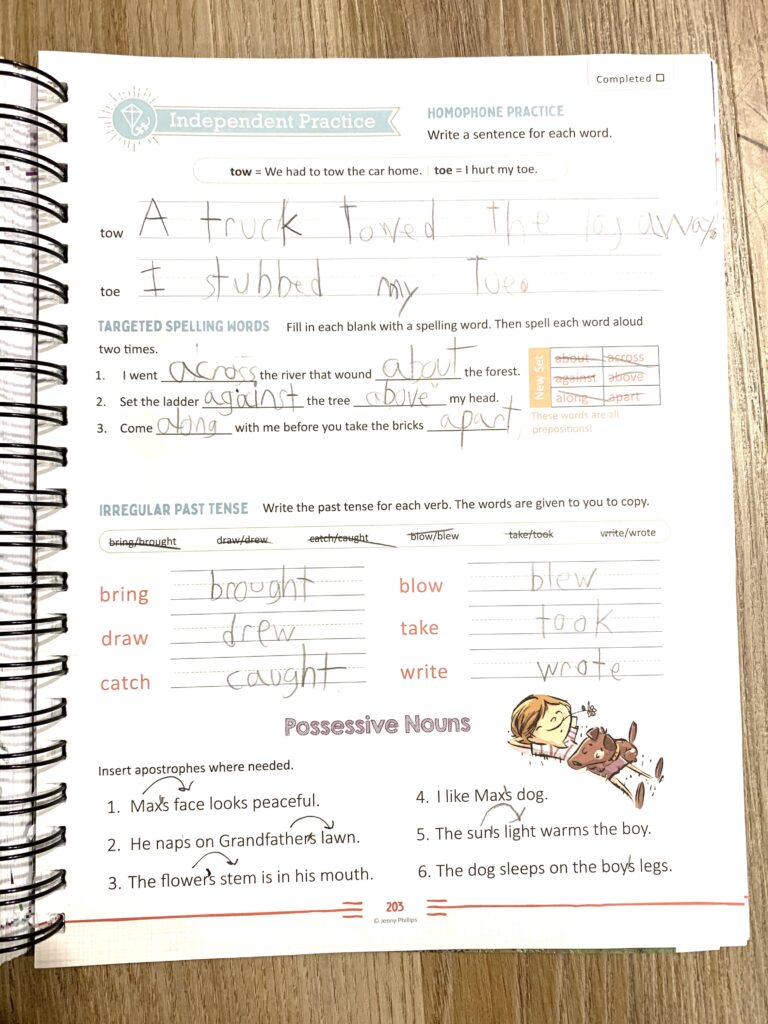 Completed
Independent Practice
HOMOPHONE PRACTICE
Write a sentence for each word.
tow = We had to tow the car home. | toe = I hurt my toe.
tow A truck towed the away.
toe I stubbed my
TARGETED SPELLING WORDS Fill in each blank with a spelling word. Then spell each word aloud
two times.
1. I went across the river that wound about the forest.
2. Set the ladder against the tree above my head.
3. Come along with me before you take the bricks apart.
New Set
about across
against above
along apart
These words are all
prepositions!
IRREGULAR PAST TENSE Write the past tense for each verb. The words are given to you to copy.
bring/brought draw/drew catch/caught blow/blew take/took write/wrote
bring brought blow blew
draw drew take took
catch caught write wrote
Possessive Nouns
Insert apostrophes where needed.
1. Max's face looks peaceful.
2. He naps on Grandfather's lawn.
3. The flower's stem is in his mouth.
4. I like Max's dog.
5. The sun's light warms the boy.
6. The dog sleeps on the boy's legs.
203
© Jenny Phillips